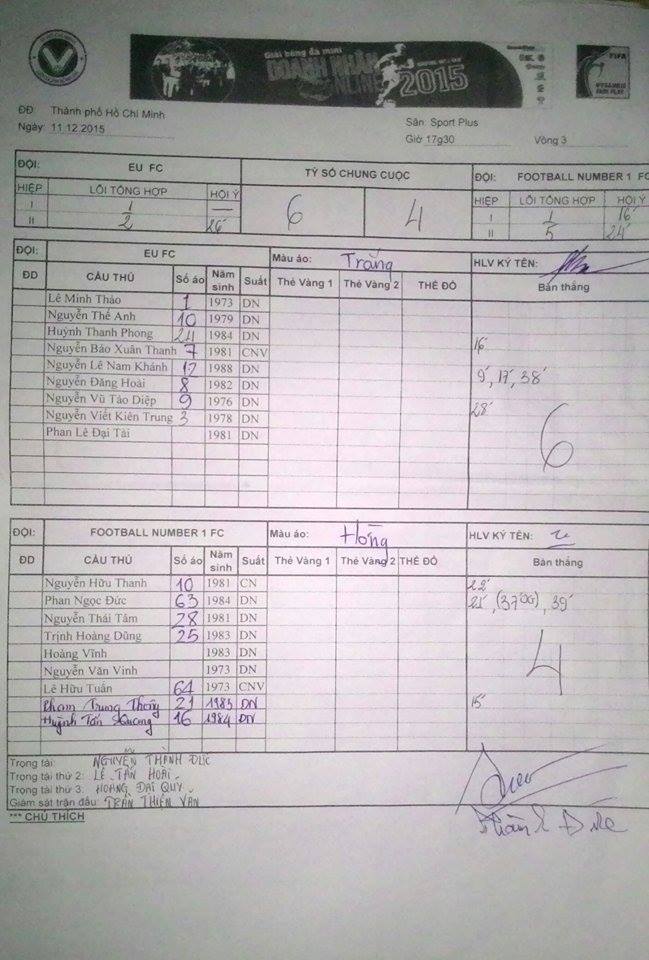 Giải bóng đá mini
DOANH NHÂN
ONLINE 2015
FIFA
ĐĐ: Thành phố Hồ Chí Minh
Ngày: 11.12.2015
Sân: Sport Plus
Giờ 17g30 Vòng 3
ĐỘI: EU FC TỶ SỐ CHUNG CUỘC ĐỘI: FOOTBALL NUMBER 1 FC
HIỆP LỖI TỔNG HỢP HỘI Ý 6 4 HIỆP LỖI TỔNG HỢP HỘI Ý
I 1 — I 1 16'
II 2 26' II 5 24'
ĐỘI: EU FC Màu áo: Trắng HLV KÝ TÊN:
ĐD CẦU THỦ Số áo Năm sinh Suất Thẻ Vàng 1 Thẻ Vàng 2 THẺ ĐỎ Bàn thắng
Lê Minh Thảo 1 1973 DN
Nguyễn Thế Anh 10 1979 DN
Huỳnh Thanh Phong 24 1984 DN
Nguyễn Bảo Xuân Thanh 7 1981 CNV 16'
Nguyễn Lê Nam Khánh 12 1988 DN
Nguyễn Đăng Hoài 8 1982 DN 9', 17', 38'
Nguyễn Vũ Táo Diệp 9 1976 DN
Nguyễn Viết Kiên Trung 3 1978 DN 28'
Phan Lê Đại Tài 1981 DN
6
ĐỘI: FOOTBALL NUMBER 1 FC Màu áo: Hồng HLV KÝ TÊN:
ĐD CẦU THỦ Số áo Năm sinh Suất Thẻ Vàng 1 Thẻ Vàng 2 THẺ ĐỎ Bàn thắng
Nguyễn Hữu Thanh 10 1981 CN 22'
Phan Ngọc Đức 63 1984 DN 21', (37'OG), 39'
Nguyễn Thái Tâm 28 1981 DN
Trịnh Hoàng Dũng 25 1983 DN
Hoàng Vĩnh 1983 DN
Nguyễn Văn Vinh 1973 DN
4
Lê Hữu Tuấn 64 1973 CNV
Phạm Trung Thông 21 1983 DN 15'
Huỳnh Tấn Quang 16 1984 DN
Trọng tài: NGUYỄN THÀNH ĐỨC
Trọng tài thứ 2: LÊ TẤN HOÀI
Trọng tài thứ 3: HOÀNG ĐẠI QUÝ
Giám sát trận đấu: TRẦN THIỆN VĂN
*** CHÚ THÍCH
Thành Đức